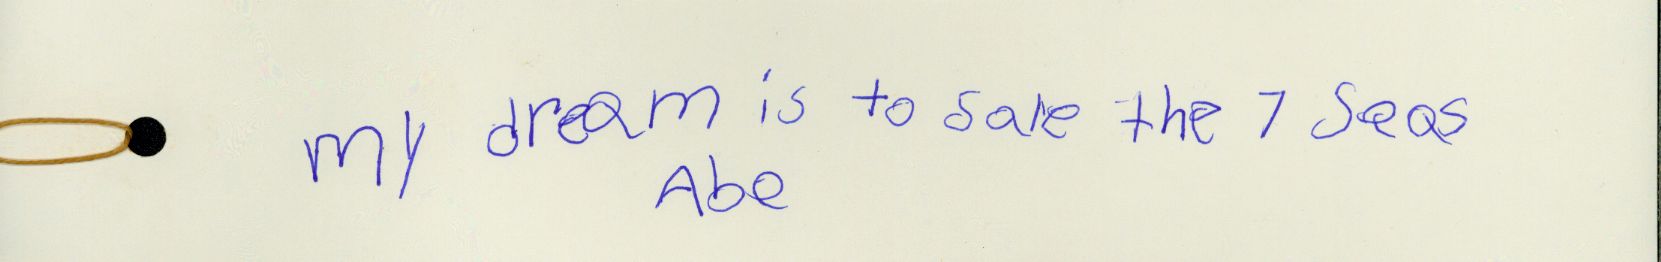 my dream is to sale the 7 Seas
Abe